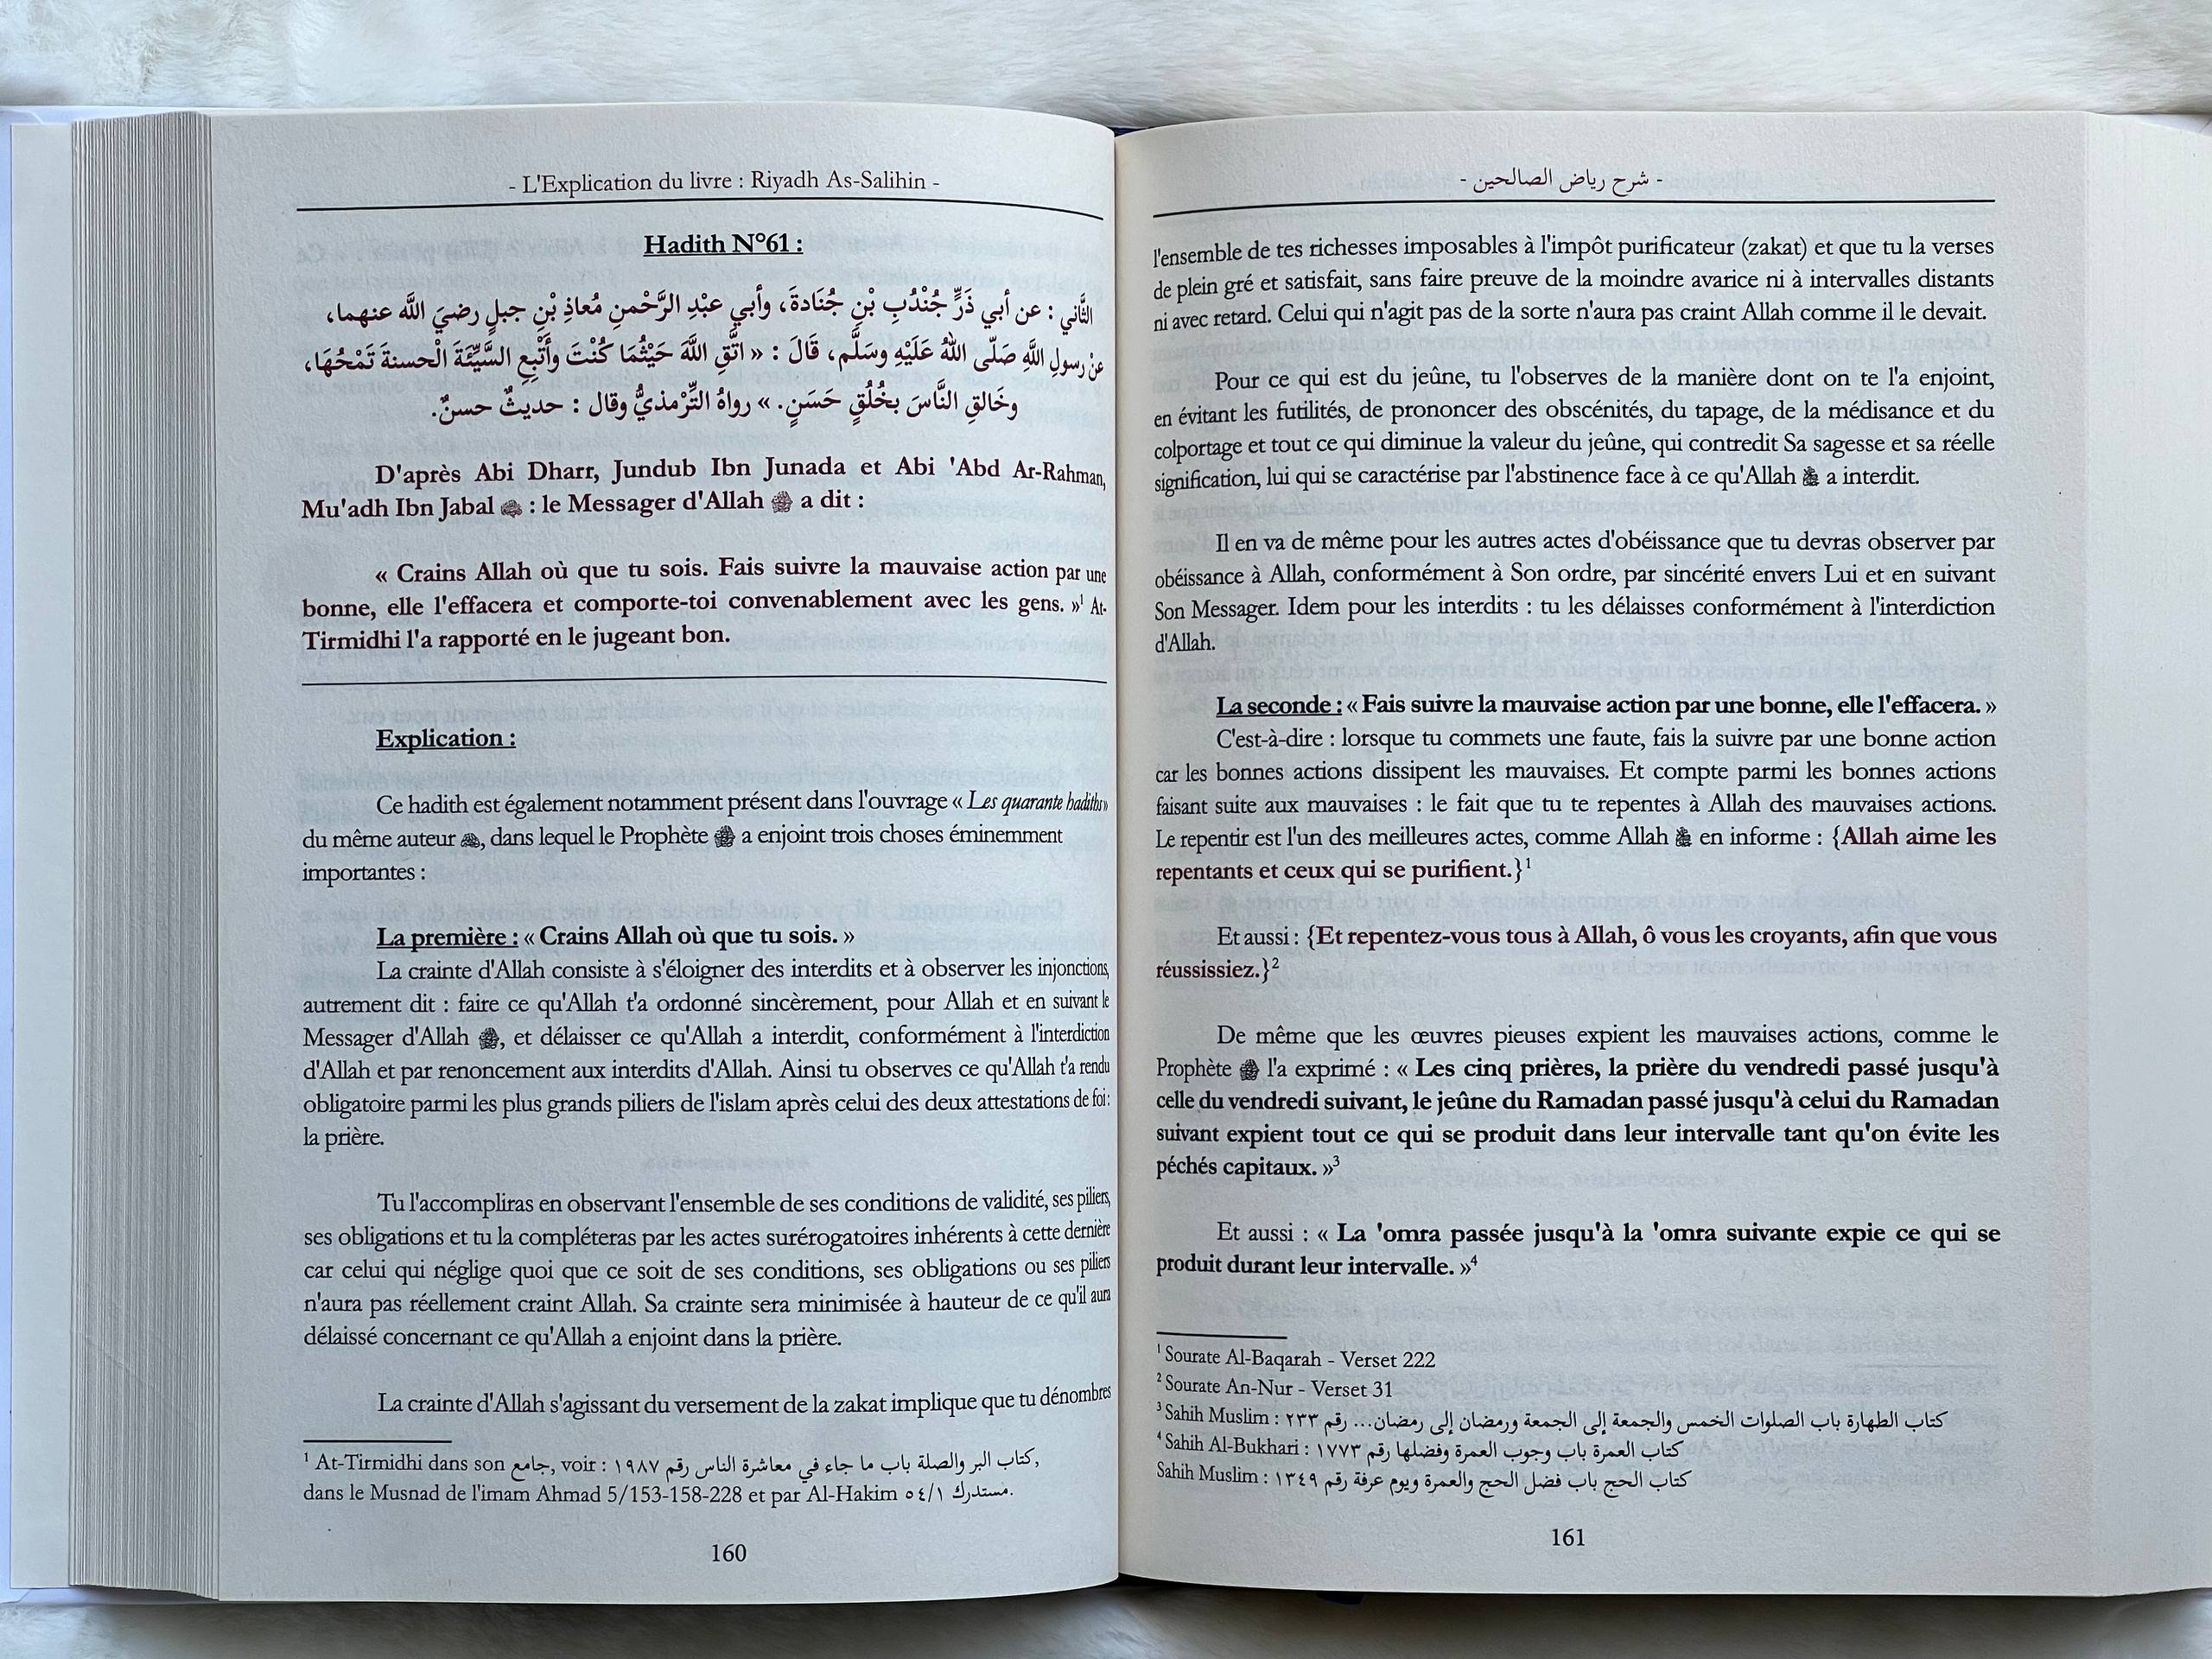 - L'Explication du livre : Riyadh As-Salihin -
Hadith N°61 :
الثَّاني : عن أبي ذَرٍّ جُنْدُبِ بْنِ جُنَادةَ، وأبي عبْدِ الرَّحْمنِ مُعاذِ بْنِ جبلٍ رضيَ اللَّه عنهما،
عنْ رسولِ اللَّهِ صَلّى اللهُ عَلَيْهِ وسَلَّم، قَالَ : « اتَّقِ اللَّهَ حَيْثُمَا كُنْتَ وأَتْبِعِ السَّيِّئَةَ الْحسنةَ تَمْحُهَا،
وخَالقِ النَّاسَ بخُلُقٍ حَسَنٍ. » رواهُ التِّرْمذيُّ وقال : حديثٌ حسنٌ.
D'après Abi Dharr, Jundub Ibn Junada et Abi 'Abd Ar-Rahman,
Mu'adh Ibn Jabal : le Messager d'Allah ﷺ a dit :
« Crains Allah où que tu sois. Fais suivre la mauvaise action par une
bonne, elle l'effacera et comporte-toi convenablement avec les gens. »¹ At-
Tirmidhi l'a rapporté en le jugeant bon.
Explication :
Ce hadith est également notamment présent dans l'ouvrage « Les quarante hadiths»
du même auteur , dans lequel le Prophète ﷺ a enjoint trois choses éminemment
importantes :
La première : « Crains Allah où que tu sois. »
La crainte d'Allah consiste à s'éloigner des interdits et à observer les injonctions,
autrement dit : faire ce qu'Allah t'a ordonné sincèrement, pour Allah et en suivant le
Messager d'Allah ﷺ, et délaisser ce qu'Allah a interdit, conformément à l'interdiction
d'Allah et par renoncement aux interdits d'Allah. Ainsi tu observes ce qu'Allah t'a rendu
obligatoire parmi les plus grands piliers de l'islam après celui des deux attestations de foi :
la prière.
Tu l'accompliras en observant l'ensemble de ses conditions de validité, ses piliers,
ses obligations et tu la compléteras par les actes surérogatoires inhérents à cette dernière
car celui qui néglige quoi que ce soit de ses conditions, ses obligations ou ses piliers
n'aura pas réellement craint Allah. Sa crainte sera minimisée à hauteur de ce qu'il aura
délaissé concernant ce qu'Allah a enjoint dans la prière.
La crainte d'Allah s'agissant du versement de la zakat implique que tu dénombres
¹ At-Tirmidhi dans son جامع, voir : كتاب البر والصلة باب ما جاء في معاشرة الناس رقم ١٩٨٧,
dans le Musnad de l'imam Ahmad 5/153-158-228 et par Al-Hakim مستدرك ٥٤/١.
160
- شرح رياض الصالحين -
l'ensemble de tes richesses imposables à l'impôt purificateur (zakat) et que tu la verses
de plein gré et satisfait, sans faire preuve de la moindre avarice ni à intervalles distants
ni avec retard. Celui qui n'agit pas de la sorte n'aura pas craint Allah comme il le devait.
Pour ce qui est du jeûne, tu l'observes de la manière dont on te l'a enjoint,
en évitant les futilités, de prononcer des obscénités, du tapage, de la médisance et du
colportage et tout ce qui diminue la valeur du jeûne, qui contredit Sa sagesse et sa réelle
signification, lui qui se caractérise par l'abstinence face à ce qu'Allah a interdit.
Il en va de même pour les autres actes d'obéissance que tu devras observer par
obéissance à Allah, conformément à Son ordre, par sincérité envers Lui et en suivant
Son Messager. Idem pour les interdits : tu les délaisses conformément à l'interdiction
d'Allah.
La seconde : « Fais suivre la mauvaise action par une bonne, elle l'effacera. »
C'est-à-dire : lorsque tu commets une faute, fais la suivre par une bonne action
car les bonnes actions dissipent les mauvaises. Et compte parmi les bonnes actions
faisant suite aux mauvaises : le fait que tu te repentes à Allah des mauvaises actions.
Le repentir est l'un des meilleures actes, comme Allah en informe : {Allah aime les
repentants et ceux qui se purifient.}¹
Et aussi : {Et repentez-vous tous à Allah, ô vous les croyants, afin que vous
réussissiez.}²
De même que les œuvres pieuses expient les mauvaises actions, comme le
Prophète ﷺ l'a exprimé : « Les cinq prières, la prière du vendredi passé jusqu'à
celle du vendredi suivant, le jeûne du Ramadan passé jusqu'à celui du Ramadan
suivant expient tout ce qui se produit dans leur intervalle tant qu'on évite les
péchés capitaux. »³
Et aussi : « La 'omra passée jusqu'à la 'omra suivante expie ce qui se
produit durant leur intervalle. »⁴
¹ Sourate Al-Baqarah - Verset 222
² Sourate An-Nur - Verset 31
³ Sahih Muslim : كتاب الطهارة باب الصلوات الخمس والجمعة إلى الجمعة ورمضان إلى رمضان... رقم ٢٣٣
⁴ Sahih Al-Bukhari : كتاب العمرة باب وجوب العمرة وفضلها رقم ١٧٧٣
Sahih Muslim : كتاب الحج باب فضل الحج والعمرة ويوم عرفة رقم ١٣٤٩
161